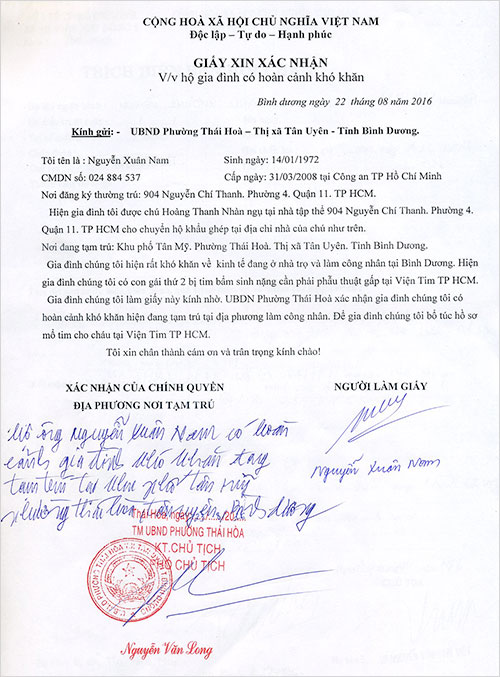 CỘNG HOÀ XÃ HỘI CHỦ NGHĨA VIỆT NAM
Độc lập – Tự do – Hạnh phúc
GIẤY XIN XÁC NHẬN
V/v hộ gia đình có hoàn cảnh khó khăn
Bình dương ngày 22 tháng 08 năm 2016
Kính gửi: - UBND Phường Thái Hoà – Thị xã Tân Uyên - Tỉnh Bình Dương.
Tôi tên là : Nguyễn Xuân Nam Sinh ngày: 14/01/1972
CMDN số: 024 884 537 Cấp ngày: 31/03/2008 tại Công an TP Hồ Chí Minh
Nơi đăng ký thường trú: 904 Nguyễn Chí Thanh. Phường 4. Quận 11. TP HCM.
Hiện gia đình tôi được chủ Hoàng Thanh Nhàn ngụ tại nhà tập thể 904 Nguyễn Chí Thanh. Phường 4.
Quận 11. TP HCM cho chuyển hộ khẩu ghép tại địa chỉ nhà của chú như trên.
Nơi đang tạm trú: Khu phố Tân Mỹ. Phường Thái Hoà. Thị xã Tân Uyên. Tỉnh Bình Dương.
Gia đình chúng tôi hiện rất khó khăn về kinh tế đang ở nhà trọ và làm công nhân tại Bình Dương. Hiện
gia đình chúng tôi có con gái thứ 2 bị tim bẩm sinh nặng cần phải phẫu thuật gấp tại Viện Tim TP HCM.
Gia đình chúng tôi làm giấy này kính nhờ. UBDN Phường Thái Hoà xác nhận gia đình chúng tôi có
hoàn cảnh khó khăn hiện đang tạm trú tại địa phương làm công nhân. Để gia đình chúng tôi bổ túc hồ sơ
mổ tim cho cháu tại Viện Tim TP HCM.
Tôi xin chân thành cám ơn và trân trọng kính chào!
XÁC NHẬN CỦA CHÍNH QUYỀN NGƯỜI LÀM GIẤY
ĐỊA PHƯƠNG NƠI TẠM TRÚ
Hộ ông Nguyễn Xuân Nam có hoàn
cảnh gia đình khó khăn đang
Nguyễn Xuân Nam
tạm trú tại khu phố Tân Mỹ
phường Thái Hòa, Tân Uyên, Bình Dương
Thái Hòa, ngày
TM UBND PHƯỜNG THÁI HÒA
KT.CHỦ TỊCH
PHÓ CHỦ TỊCH
Nguyễn Văn Long